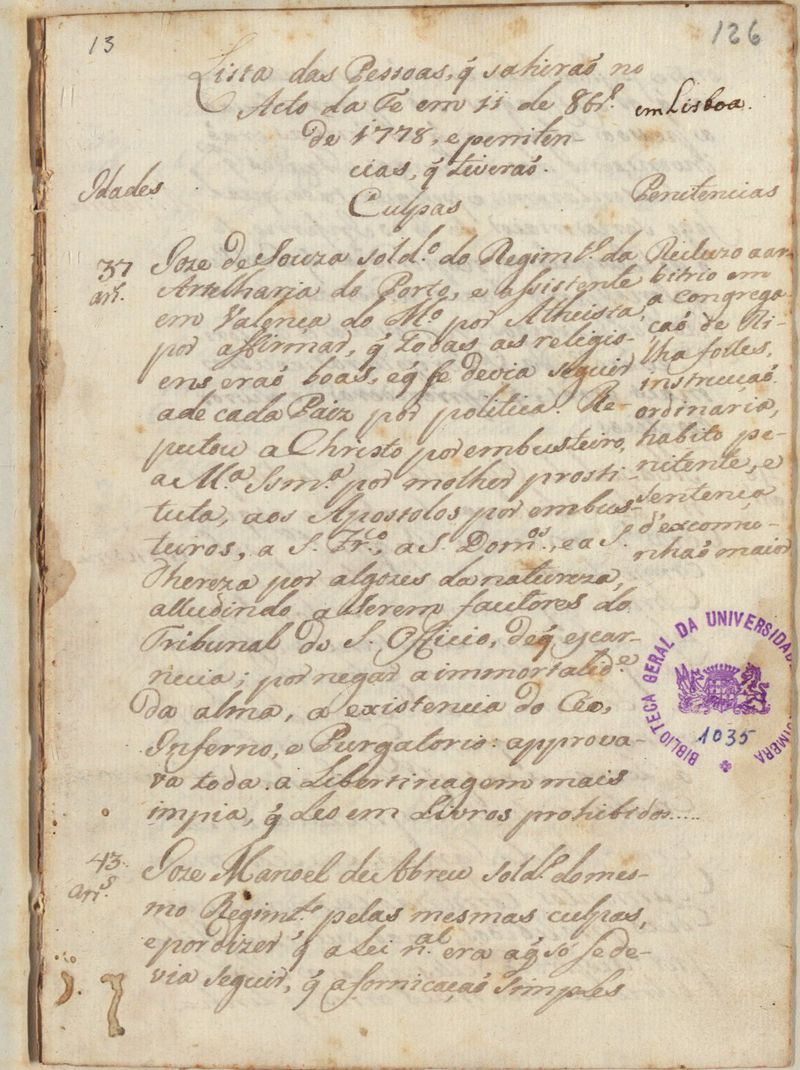 13
126
Lista das Pessoas, q̃ sahiraõ no
Acto da Fe em 11 de 8br.º em Lisboa.
de 1778, e peniten-
cias, q̃ tiveraõ.
Idades
Culpas
Penitencias
37
an.s
Joze de Souza sold.º do Regim.to da
Artelharia do Porto, e assistente
em Valença do M.º por Atheista,
por affirmar, q̃ todas as religio-
ens eraõ boas, e q̃ se devia seguir
a de cada Paiz por politica. Re-
putou a Christo por embusteiro,
a M.ª Ssm.ª por molher prosti-
tuta, aos Apostolos por embus-
teiros, a S. Fr.co, a S. Dom.os, e a S.
Thereza por algozes da natureza,
alludindo a serem fautores do
Tribunal do S. Officio, de q̃ escar-
necia; por negar a immortalid.e
da alma, a existencia do Ceo,
Inferno, e Purgatorio: approva-
va toda a Libertinagem mais
impia, q̃ leo em Livros prohibidos.....
Recluzo a ar
bitrio em
a Congrega
çaõ de Ri-
lhafolles,
instrucçaõ
ordinaria,
habito pe-
nitente, e
sentença
d'excomu-
nhaõ maior
43
an.s
Joze Manoel de Abreu sold.º do mes-
mo Regim.to pelas mesmas culpas,
e por dizer q̃ a Lei n.al era a q̃ só se de-
via seguir, q̃ a fornicaçaõ simples
BIBLIOTECA GERAL DA UNIVERSIDADE COIMBRA
1035